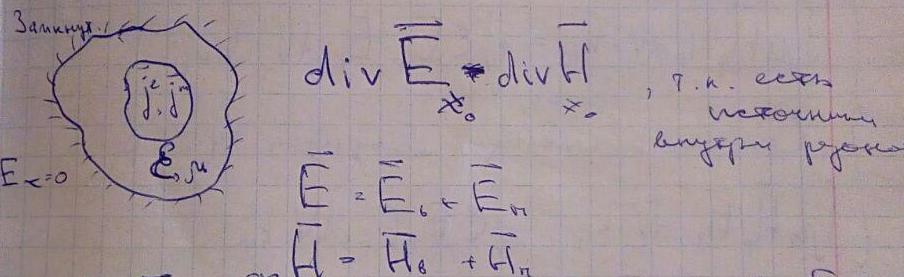 Замкнут.
j^e, j^m
ε, μ
E_τ=0
div E̅ div H̅
≠0 ≠0
, т.к. есть
источники
внутри резона
E̅ = E̅_в + E̅_п
H̅ = H̅_в + H̅_п